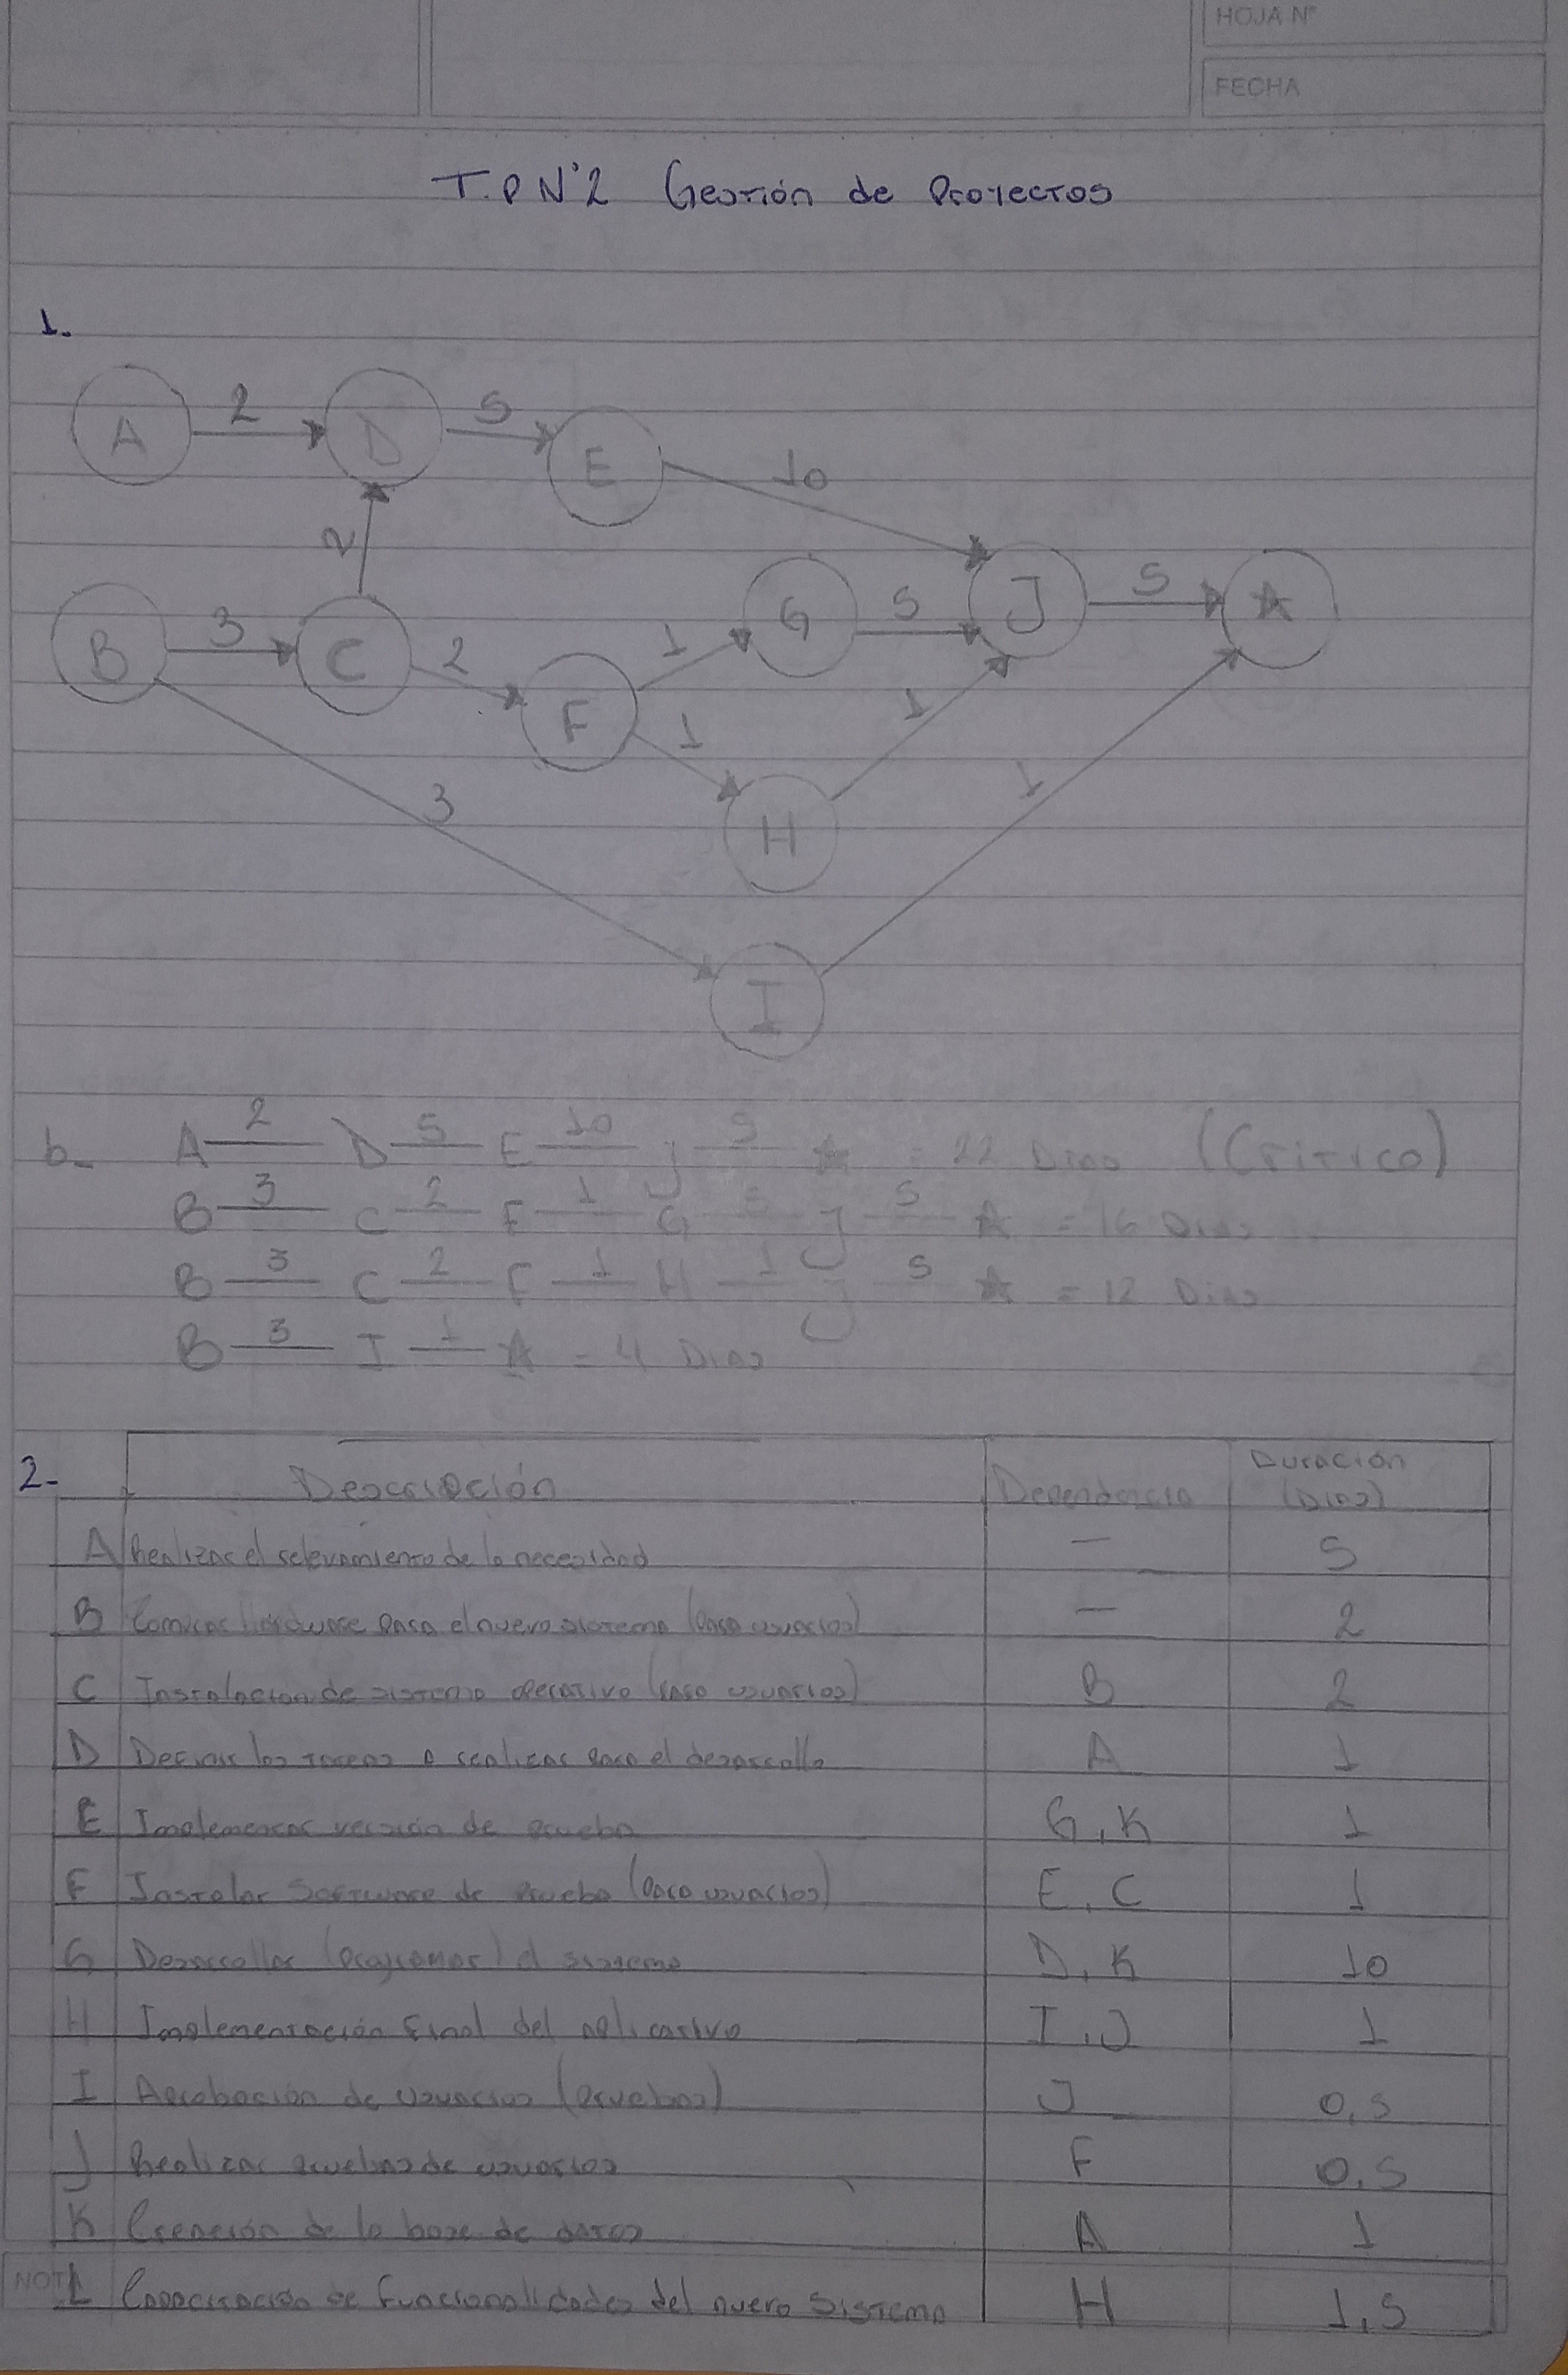 HOJA N°
FECHA
T.P N°2 Gestión de Proyectos
1.
A 2 D 5 E 10
2
B 3 C 2 F 1 G 5 J 5 ☆
1 H 1
3 I 1
b- A 2 D 5 E 10 J 5 ☆ = 22 Dias (Critico)
B 3 C 2 F 1 G 5 J 5 ☆ = 16 Dias
B 3 C 2 F 1 H 1 J 5 ☆ = 12 Dias
B 3 I 1 ☆ = 4 Dias
2- Descripción Dependencia Duración (Dias)
A Realizar el relevamiento de la necesidad — 5
B hardware para el nuevo sistema (para usuarios) — 2
C Instalacion de sistema operativo (para usuarios) B 2
D Definir las tareas a realizar para el desarrollo A 1
E Implementar versión de prueba G, K 1
F Instalar Software de Prueba (para usuarios) E, C 1
G Desarrollar (programar) el sistema D, K 10
H Implementación Final del aplicativo I, J 1
I Aprobación de Usuarios (Pruebas) J 0,5
J Realizar pruebas de usuarios F 0,5
K Creación de la base de datos A 1
NOTA
L Capacitación de funcionalidades del nuevo Sistema H 1,5